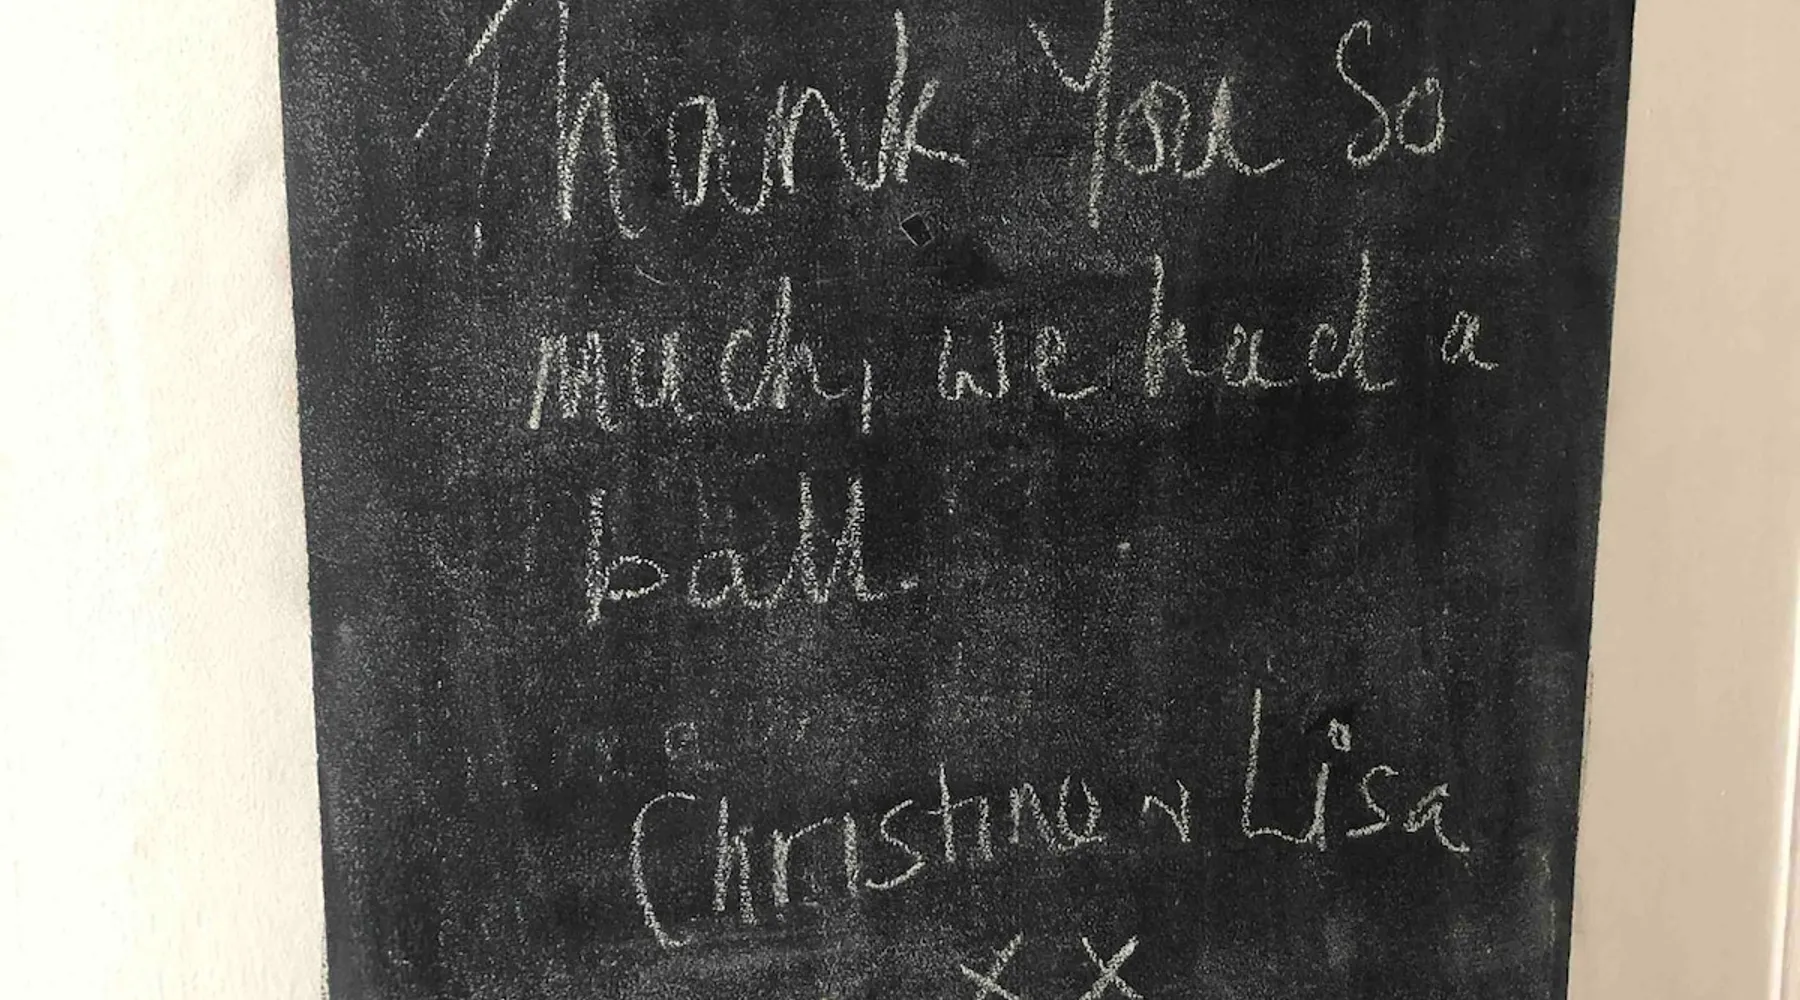 Thank You So
much, we had a
ball.
Christina & Lisa
xx